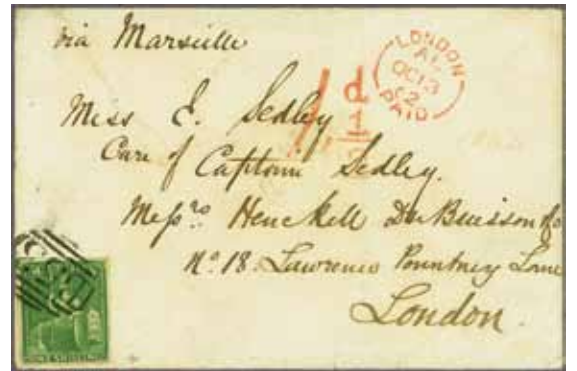 via Marseille
LONDON
OC 13
62
PAID
1d
½
Miss E. Sedley
Care of Captain Sedley.
Messrs. Henckell DuBuisson & Co
No. 18. Lawrence Pountney Lane
London.